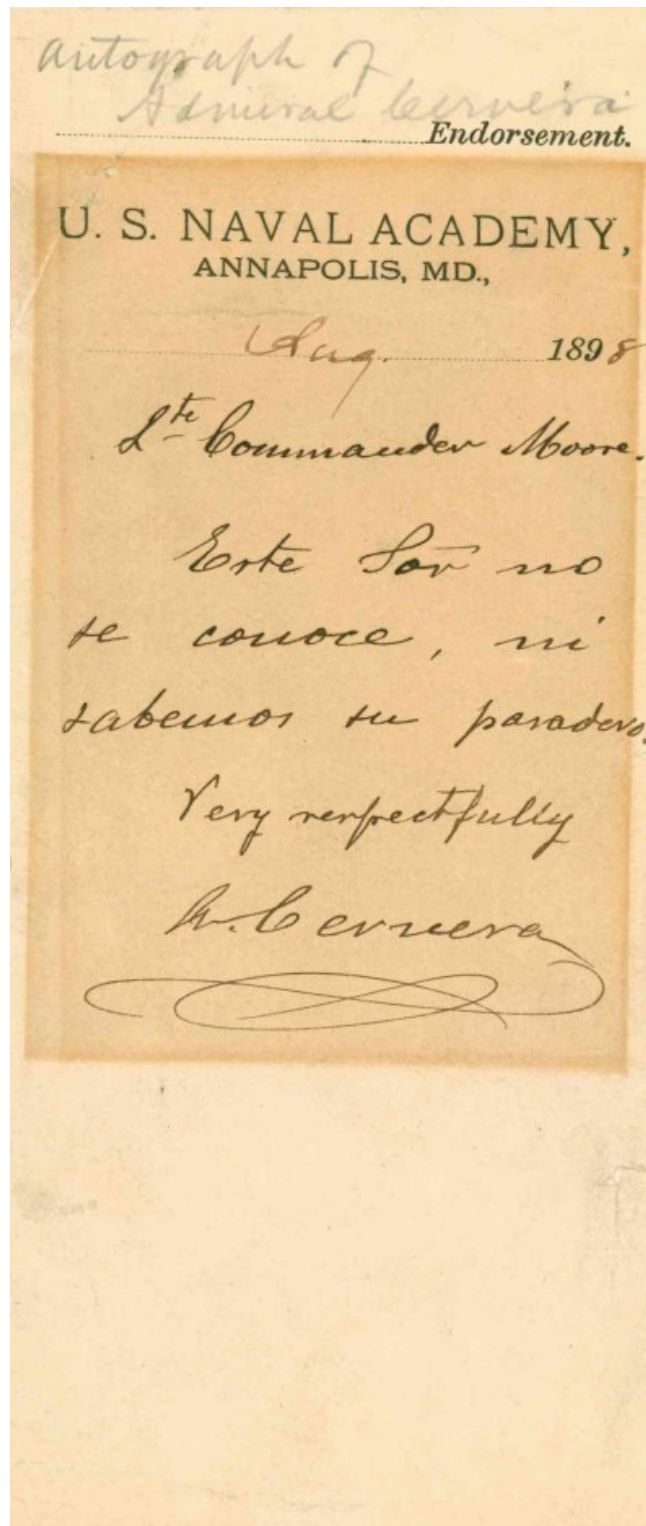 Autograph of
Admiral Cerveira
Endorsement.
U. S. NAVAL ACADEMY,
ANNAPOLIS, MD.,
Aug. 1898
Lte Commander Moore.
Este Sor no
se conoce, ni
sabemos su paradero.
Very respectfully
Cervera